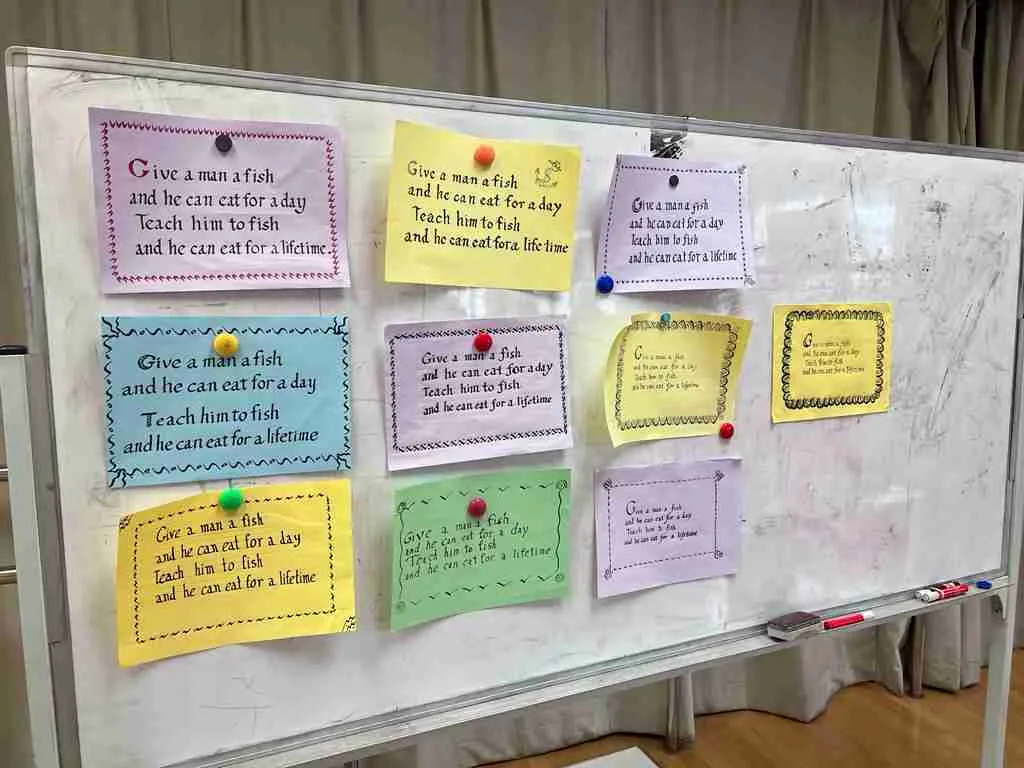 Give a man a fish
and he can eat for a day
Teach him to fish
and he can eat for a lifetime.
Give a man a fish
and he can eat for a day
Teach him to fish
and he can eat for a life time
Give a man a fish
and he can eat for a day
Teach him to fish
and he can eat for a lifetime
Give a man a fish
and he can eat for a day
Teach him to fish
and he can eat for a lifetime
Give a man a fish
and he can eat for a day
Teach him to fish
and he can eat for a lifetime
Give a man a fish
and he can eat for a day
Teach him to fish
and he can eat for a lifetime
Give a man a fish
and he can eat for a day
Teach him to fish
and he can eat for a lifetime
Give a man a fish
and he can eat for a day
Teach him to fish
and he can eat for a lifetime
Give a man a fish
and he can eat for a day
Teach him to fish
and he can eat for a lifetime
Give a man a fish
and he can eat for a day
Teach him to fish
and he can eat for a lifetime